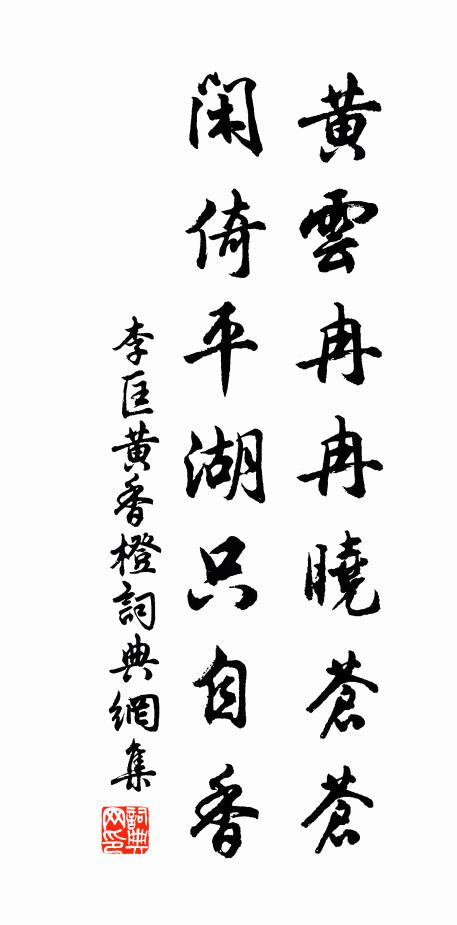 黄雲冉冉曉蒼蒼
閑倚平湖只自香
李匡黄香橙詞典網集
詞典网印